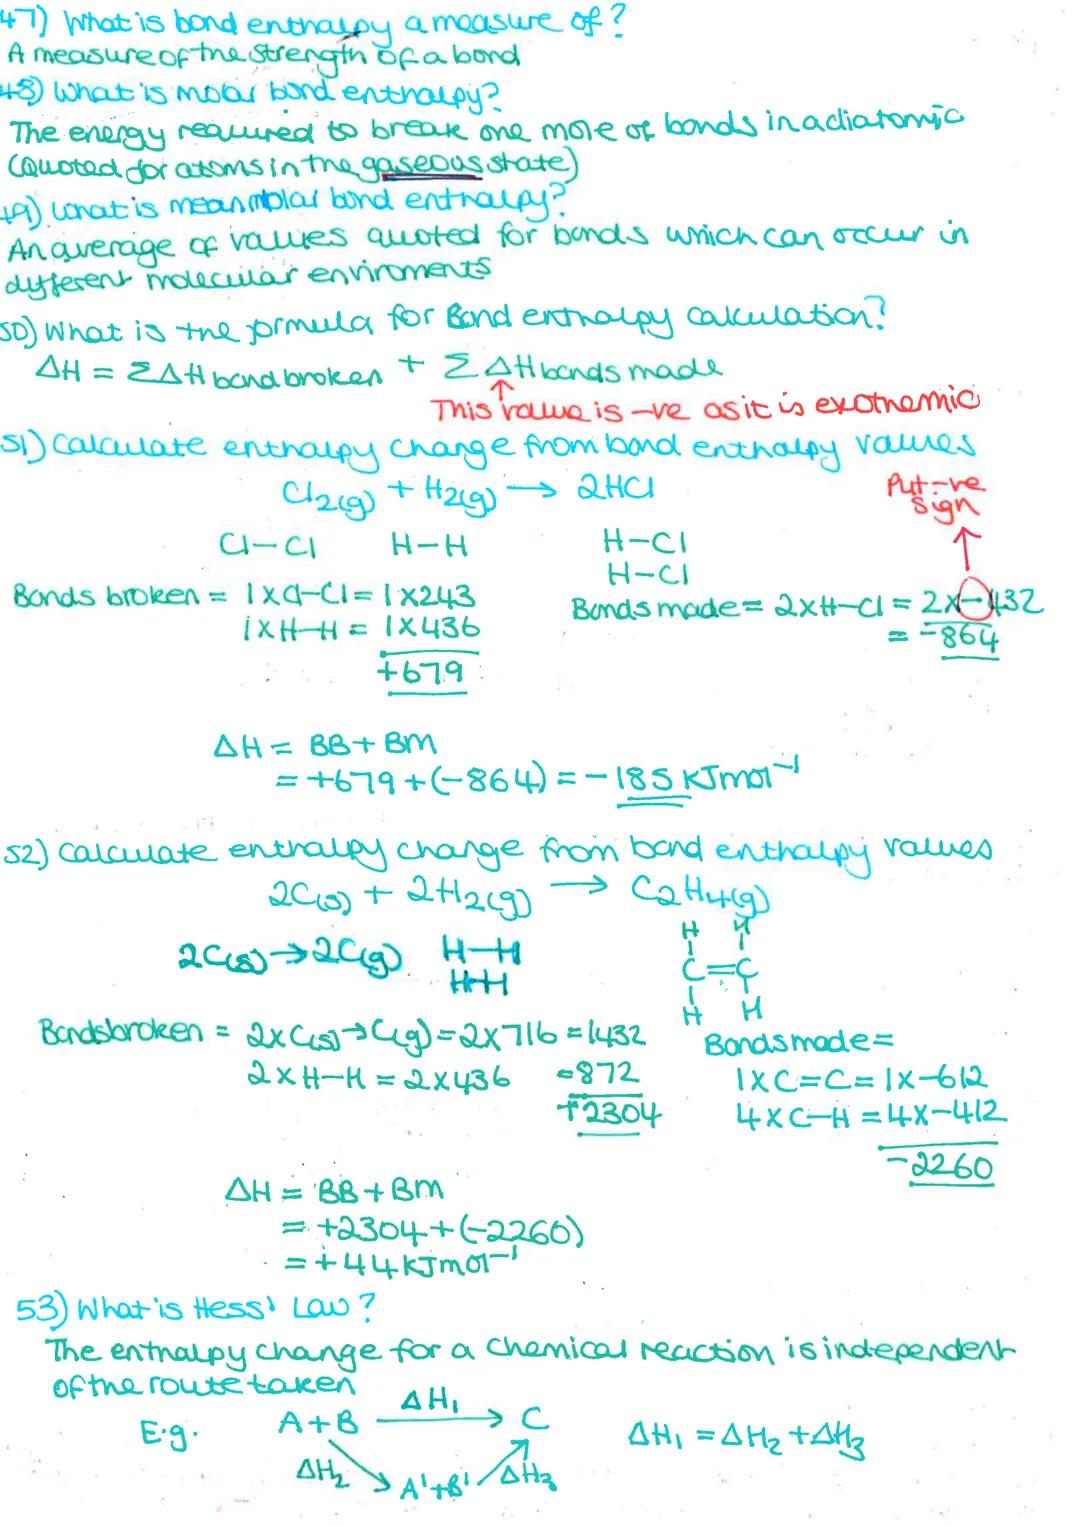 47) What is bond enthalpy a measure of?
A measure of the strength of a bond
48) What is molar bond enthalpy?
The energy required to break one mole of bonds in a diatomic
(Quoted for atoms in the gaseous state)
49) What is mean molar bond enthalpy?
An average of values quoted for bonds which can occur in
different molecular enviroments
50) What is the formula for Bond enthalpy calculation?
ΔH = ΣΔH bond broken + ΣΔH bonds made
This value is -ve as it is exothemic
51) Calculate enthalpy change from bond enthalpy values
Cl₂(g) + H₂(g) → 2HCl
Put -ve
sign
Cl-Cl H-H H-Cl
H-Cl
Bonds broken = 1xCl-Cl = 1x243
1xH-H = 1x436
+679
Bonds made = 2xH-Cl = 2x-432
= -864
ΔH = BB + BM
= +679 + (-864) = -185 KJmol⁻¹
52) Calculate enthalpy change from bond enthalpy values
2C(s) + 2H₂(g) → C₂H₄(g)
2C(s) → 2C(g) H-H
H-H
H H
C=C
H H
Bonds broken = 2xC(s)→C(g) = 2x716 = 1432
2xH-H = 2x436 =872
+2304
Bonds made =
1xC=C = 1x-612
4xC-H = 4x-412
-2260
ΔH = BB + BM
= +2304 + (-2260)
= +44 KJmol⁻¹
53) What is Hess' Law?
The enthalpy change for a chemical reaction is independent
of the route taken
E.g. A + B ΔH₁ → C ΔH₁ = ΔH₂ + ΔH₃
ΔH₂ A' + B' ΔH₃